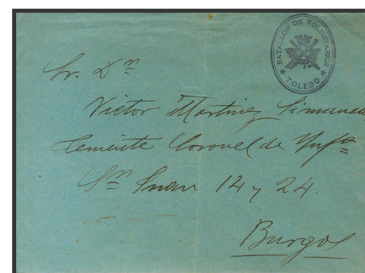 BATALLÓN DE VOLUNTARIOS
TOLEDO
Sr. Dn
Victor Martinez Simancas
Teniente Coronel de Ynfa
Sn Juan 14 y 24.
Burgos